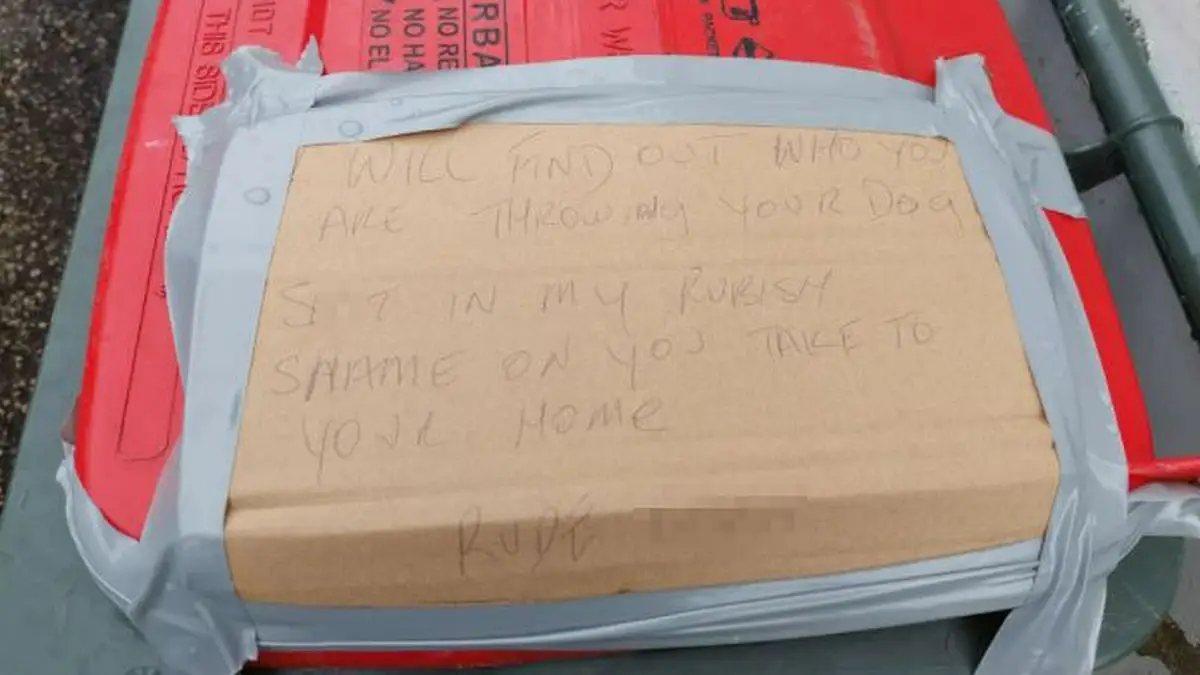 WILL FIND OUT WHO YOU
ARE THROWING YOUR DOG
S T IN MY RUBISH
SHAME ON YOU TAKE TO
YOUR HOME
RUDE
THIS SIDE
NO RE
NO HA
NO EL
RBA